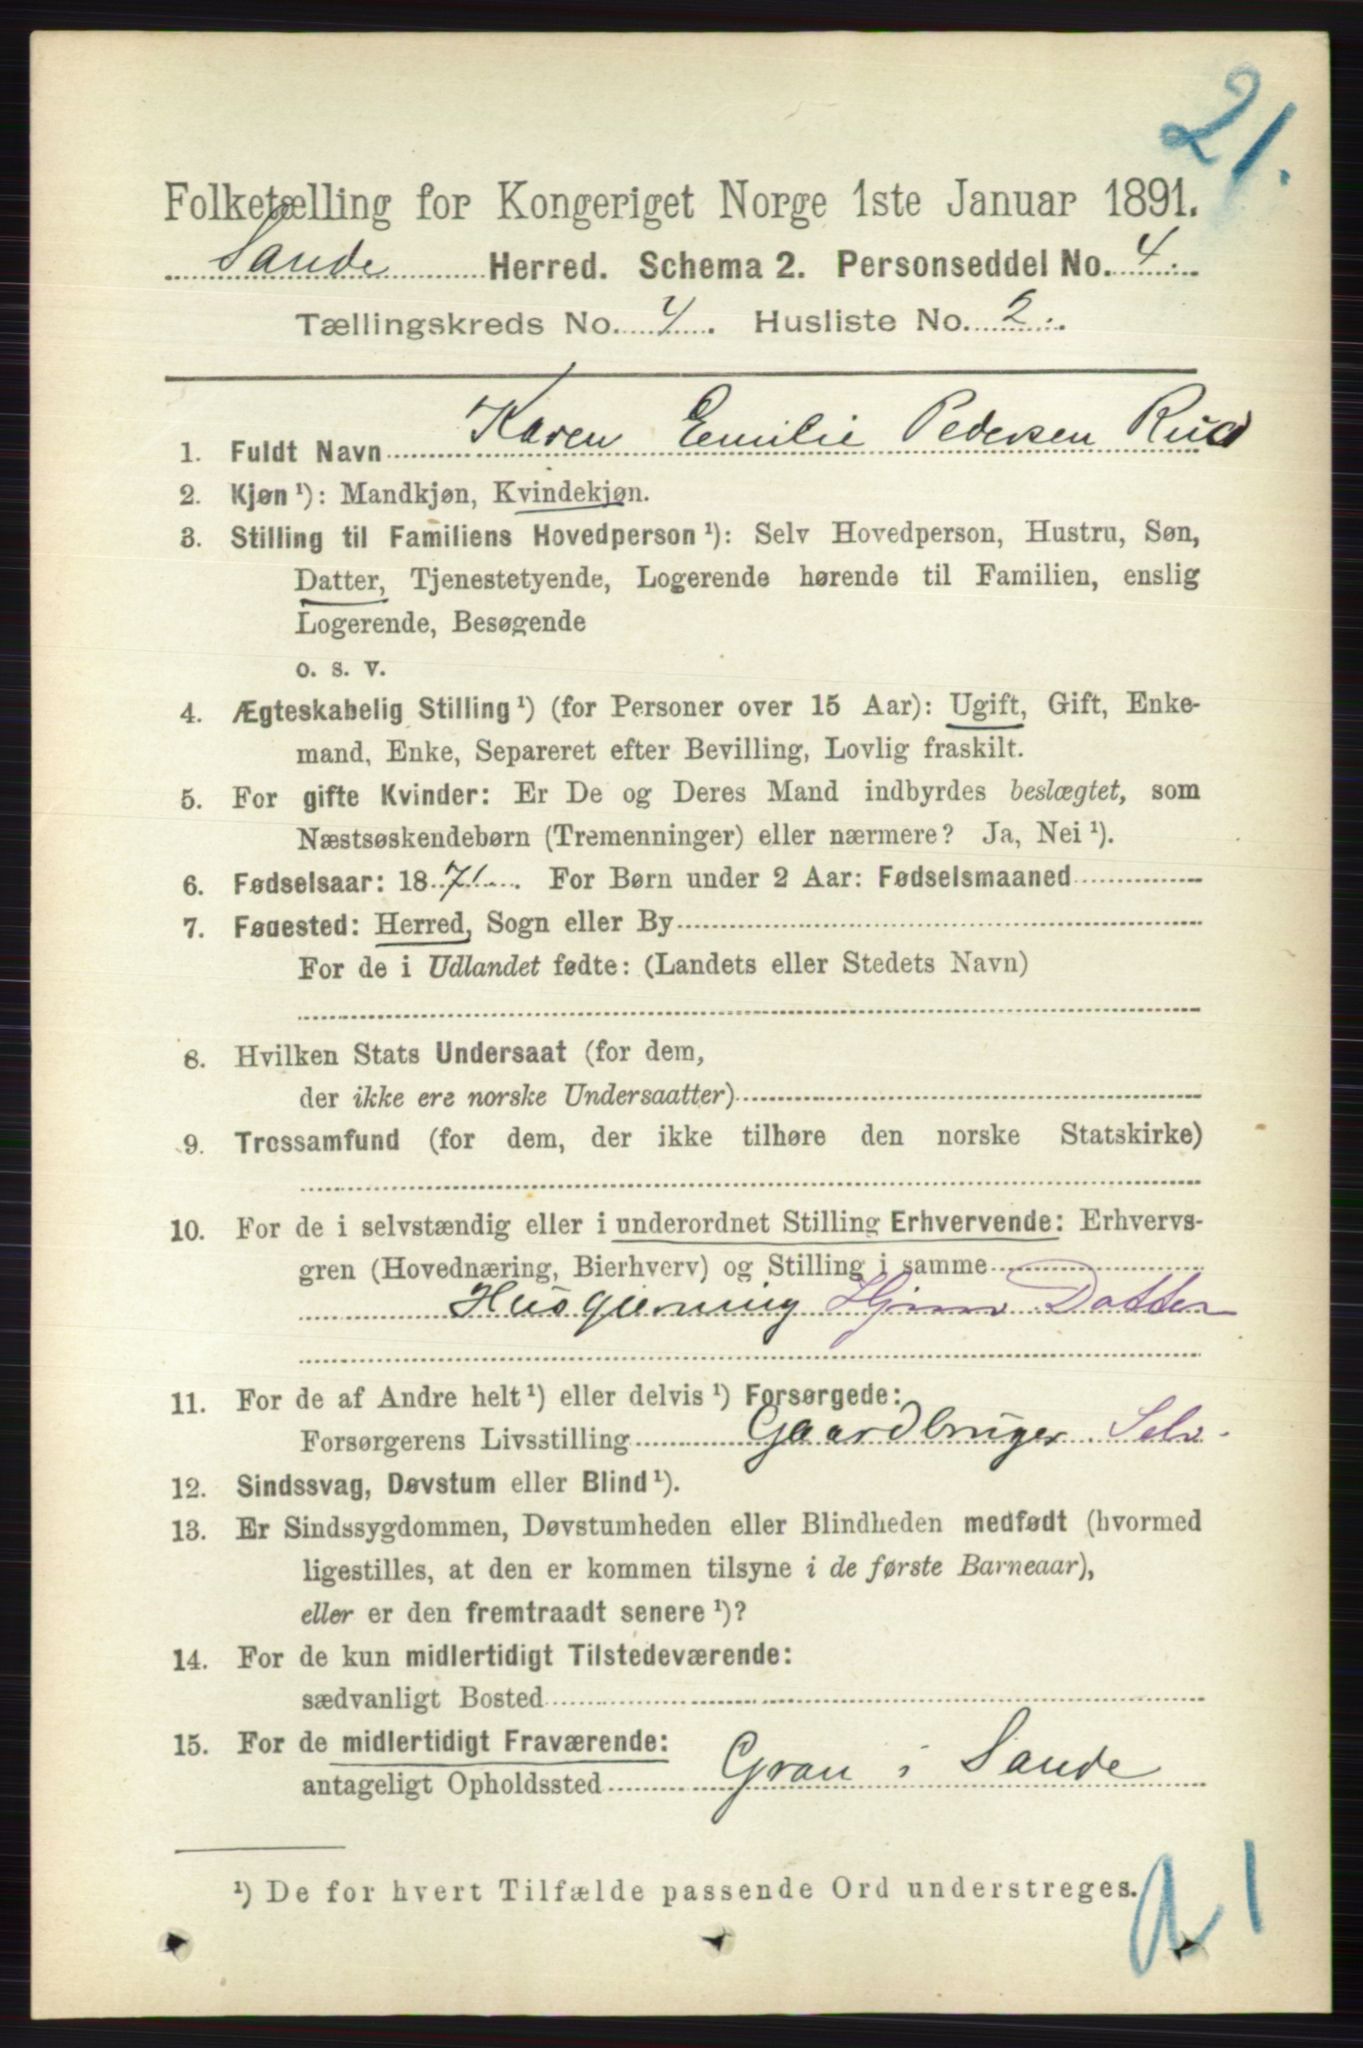 21.
Folketælling for Kongeriget Norge 1ste Januar 1891.
Sande Herred. Schema 2. Personseddel No. 4.
Tællingskreds No. 4. Husliste No. 2.
1. Fuldt Navn Karen Emilie Pedersen Rud
2. Kjøn ¹): Mandkjøn, Kvindekjøn.
3. Stilling til Familiens Hovedperson ¹): Selv Hovedperson, Hustru, Søn,
Datter, Tjenestetyende, Logerende hørende til Familien, enslig
Logerende, Besøgende
o. s. v.
4. Ægteskabelig Stilling ¹) (for Personer over 15 Aar): Ugift, Gift, Enke-
mand, Enke, Separeret efter Bevilling, Lovlig fraskilt.
5. For gifte Kvinder: Er De og Deres Mand indbyrdes beslægtet, som
Næstsøskendebørn (Tremenninger) eller nærmere? Ja, Nei ¹).
6. Fødselsaar: 1871. For Børn under 2 Aar: Fødselsmaaned
7. Føuested: Herred, Sogn eller By
For de i Udlandet fødte: (Landets eller Stedets Navn)
8. Hvilken Stats Undersaat (for dem,
der ikke ere norske Undersaatter)
9. Trossamfund (for dem, der ikke tilhøre den norske Statskirke)
10. For de i selvstændig eller i underordnet Stilling Erhvervende: Erhvervs-
gren (Hovednæring, Bierhverv) og Stilling i samme
Husgjerning Datter
11. For de af Andre helt ¹) eller delvis ¹) Forsørgede:
Forsørgerens Livsstilling Gaardbruger Selv.
12. Sindssvag, Døvstum eller Blind ¹).
13. Er Sindssygdommen, Døvstumheden eller Blindheden medfødt (hvormed
ligestilles, at den er kommen tilsyne i de første Barneaar),
eller er den fremtraadt senere ¹)?
14. For de kun midlertidigt Tilstedeværende:
sædvanligt Bosted
15. For de midlertidigt Fraværende:
antageligt Opholdssted Gran i Sande
¹) De for hvert Tilfælde passende Ord understreges.